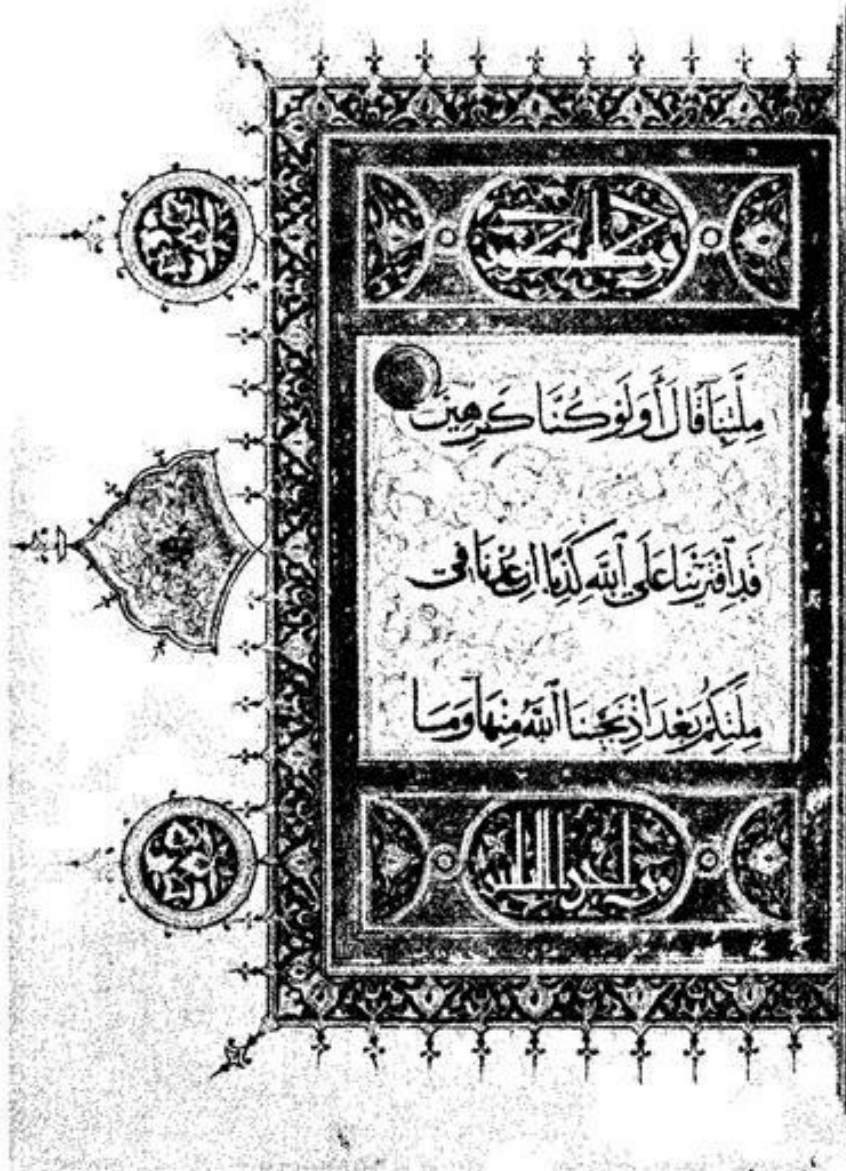 مِلَّتِنَا قَالَ أَوَلَوْ كُنَّا كَرِهِينَ
قَدِ ٱفْتَرَيْنَا عَلَى ٱللَّهِ كَذِبًا اِنْ عُدْنَا فِى
مِلَّتِكُمْ بَعْدَ اِذْ نَجَّىنَا ٱللَّهُ مِنْهَا وَمَا